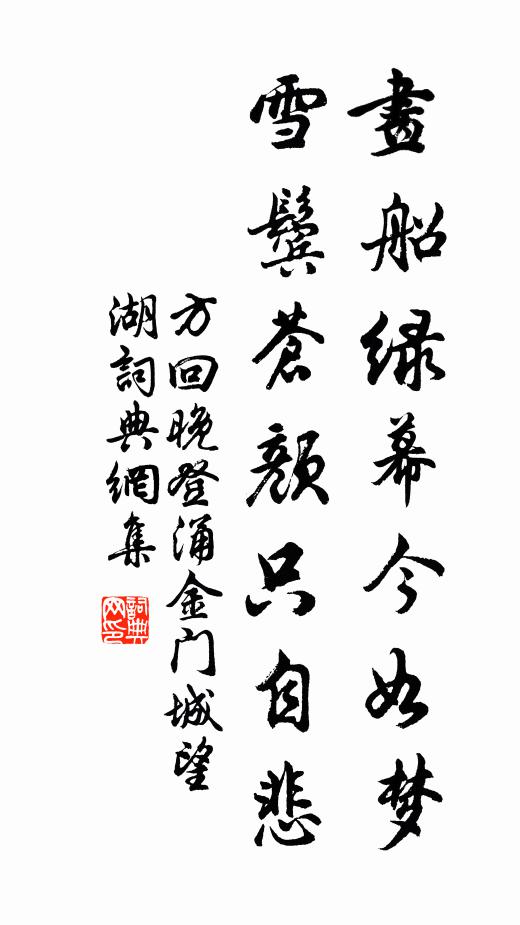 畫船緑幕今如梦
雪鬓蒼顔只自悲
方回晚登涌金门城望
湖詞典網集
詞典网印